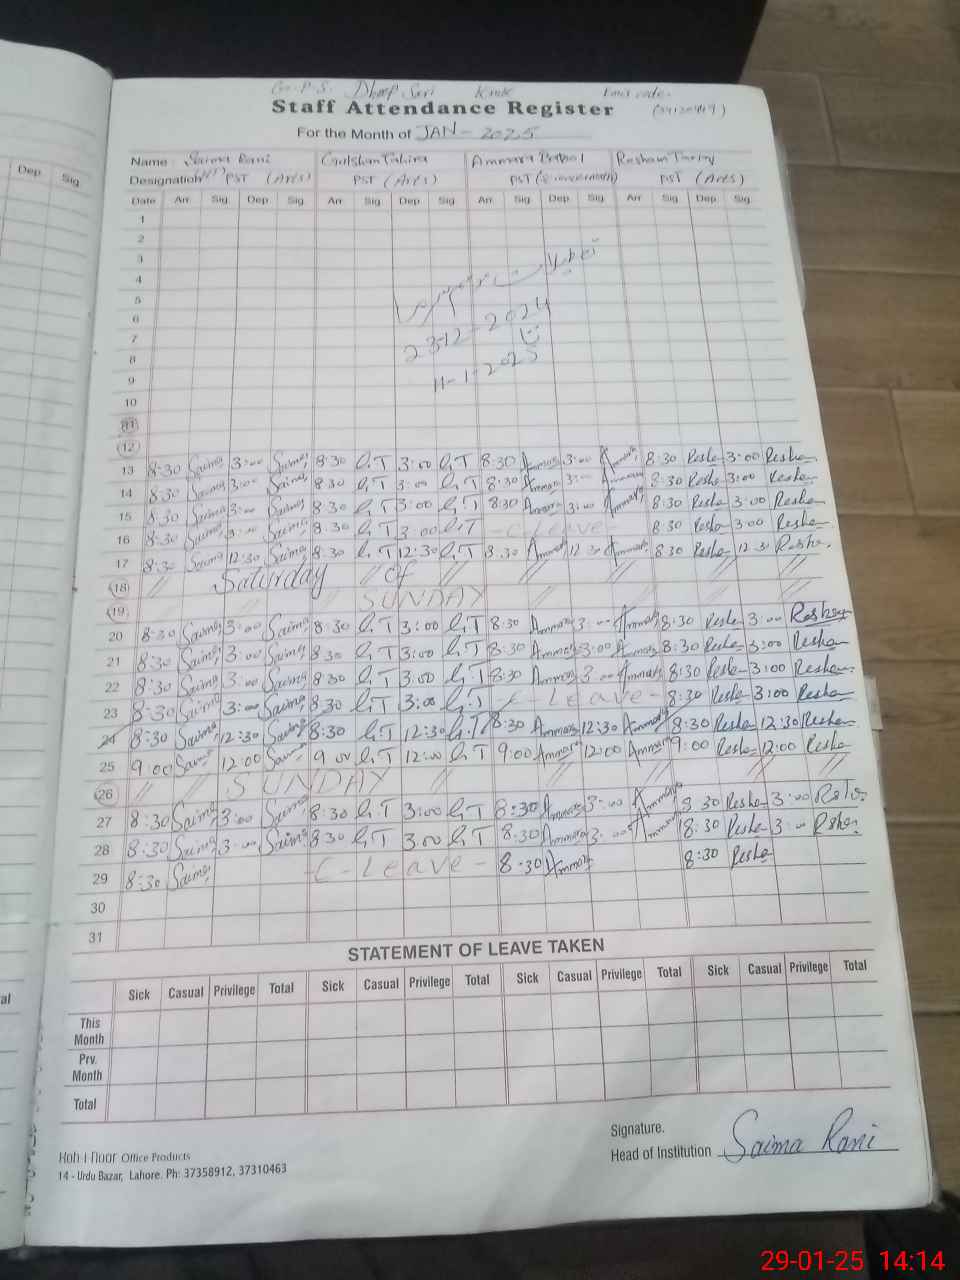 G.P.S. Dhoop Seri
Staff Attendance Register
For the Month of JAN - 2025
Name : Saima Rani Gulshan Tahira Ammara Batool Resham
Designation PST (Arts) PST (Arts) PST PST (Arts)
Date Arr Sig. Dep Sig Arr Sig. Dep Sig Arr Sig Dep. Sig. Arr Sig. Dep Sig.
1
2
3
4
تعطیلات موسم سرما
5
6
23-12-2024
7
تا
8
11-1-2025
9
10
11
12
13 8:30 Saima 3:00 Saima 8:30 G.T 3:00 G.T 8:30 Ammara 3:00 Ammara 8:30 Resha 3:00 Resham
14 8:30 Saima 3:00 Saima 8:30 G.T 3:00 G.T 8:30 Ammara 3:00 Ammara 8:30 Resha 3:00 Resham
15 8:30 Saima 3:00 Saima 8:30 G.T 3:00 G.T 8:30 Ammara 3:00 Ammara 8:30 Resha 3:00 Resham
16 8:30 Saima 3:00 Saima 8:30 G.T 3:00 G.T - C-Leave - 8:30 Resha 3:00 Resham
17 8:30 Saima 12:30 Saima 8:30 G.T 12:30 G.T 8:30 Ammara 12:30 Ammara 8:30 Resha 12:30 Resha
18 // Saturday // Of // // // // //
19 // SUNDAY
20 8:30 Saima 3:00 Saima 8:30 G.T 3:00 G.T 8:30 Ammara 3:00 Ammara 8:30 Resha 3:00 Resham
21 8:30 Saima 3:00 Saima 8:30 G.T 3:00 G.T 8:30 Ammara 3:00 Ammara 8:30 Resha 3:00 Resham
22 8:30 Saima 3:00 Saima 8:30 G.T 3:00 G.T 8:30 Ammara 3:00 Ammara 8:30 Resha 3:00 Resham
23 8:30 Saima 3:00 Saima 8:30 G.T 3:00 G.T C-Leave - 8:30 Resha 3:00 Resham
24 8:30 Saima 12:30 Saima 8:30 G.T 12:30 G.T 8:30 Ammara 12:30 Ammara 8:30 Resha 12:30 Resham
25 9:00 Saima 12:00 Saima 9:00 G.T 12:00 G.T 9:00 Ammara 12:00 Ammara 9:00 Resha 12:00 Resha
26 // // SUNDAY // // // // //
27 8:30 Saima 3:00 Saima 8:30 G.T 3:00 G.T 8:30 Ammara 3:00 Ammara 8:30 Resha 3:00 Resha
28 8:30 Saima 3:00 Saima 8:30 G.T 3:00 G.T 8:30 Ammara 3:00 Ammara 8:30 Resha 3:00 Resha
29 8:30 Saima - C-Leave - 8:30 Ammara 8:30 Resha
30
31
STATEMENT OF LEAVE TAKEN
Sick Casual Privilege Total Sick Casual Privilege Total Sick Casual Privilege Total Sick Casual Privilege Total
This Month
Prv. Month
Total
Signature.
Head of Institution Saima Rani
Koh-i-Noor Office Products
14 - Urdu Bazar, Lahore. Ph: 37358912, 37310463
Dep Sig.
al
29-01-25 14:14